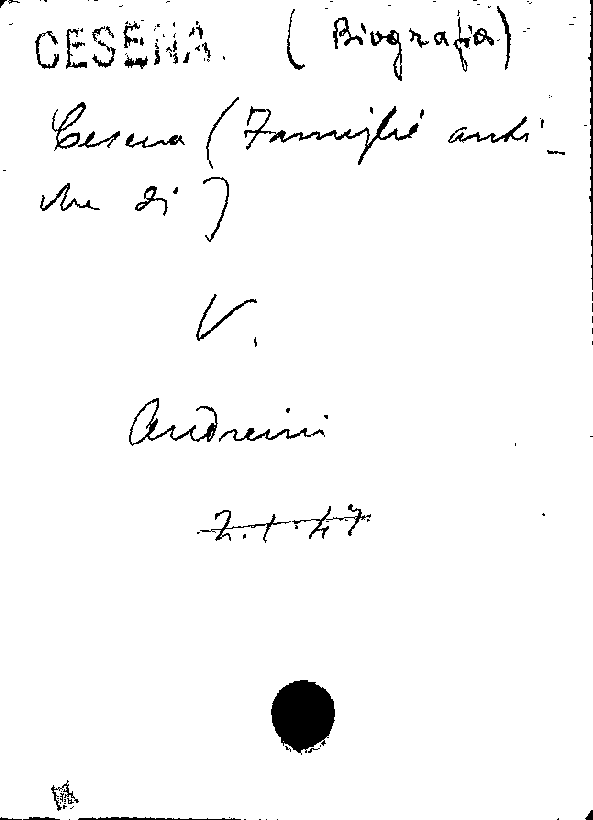 CESENA. (Biografia)
Cesena (Famiglie anti-
che di)
V.
Andreini
2.1.47